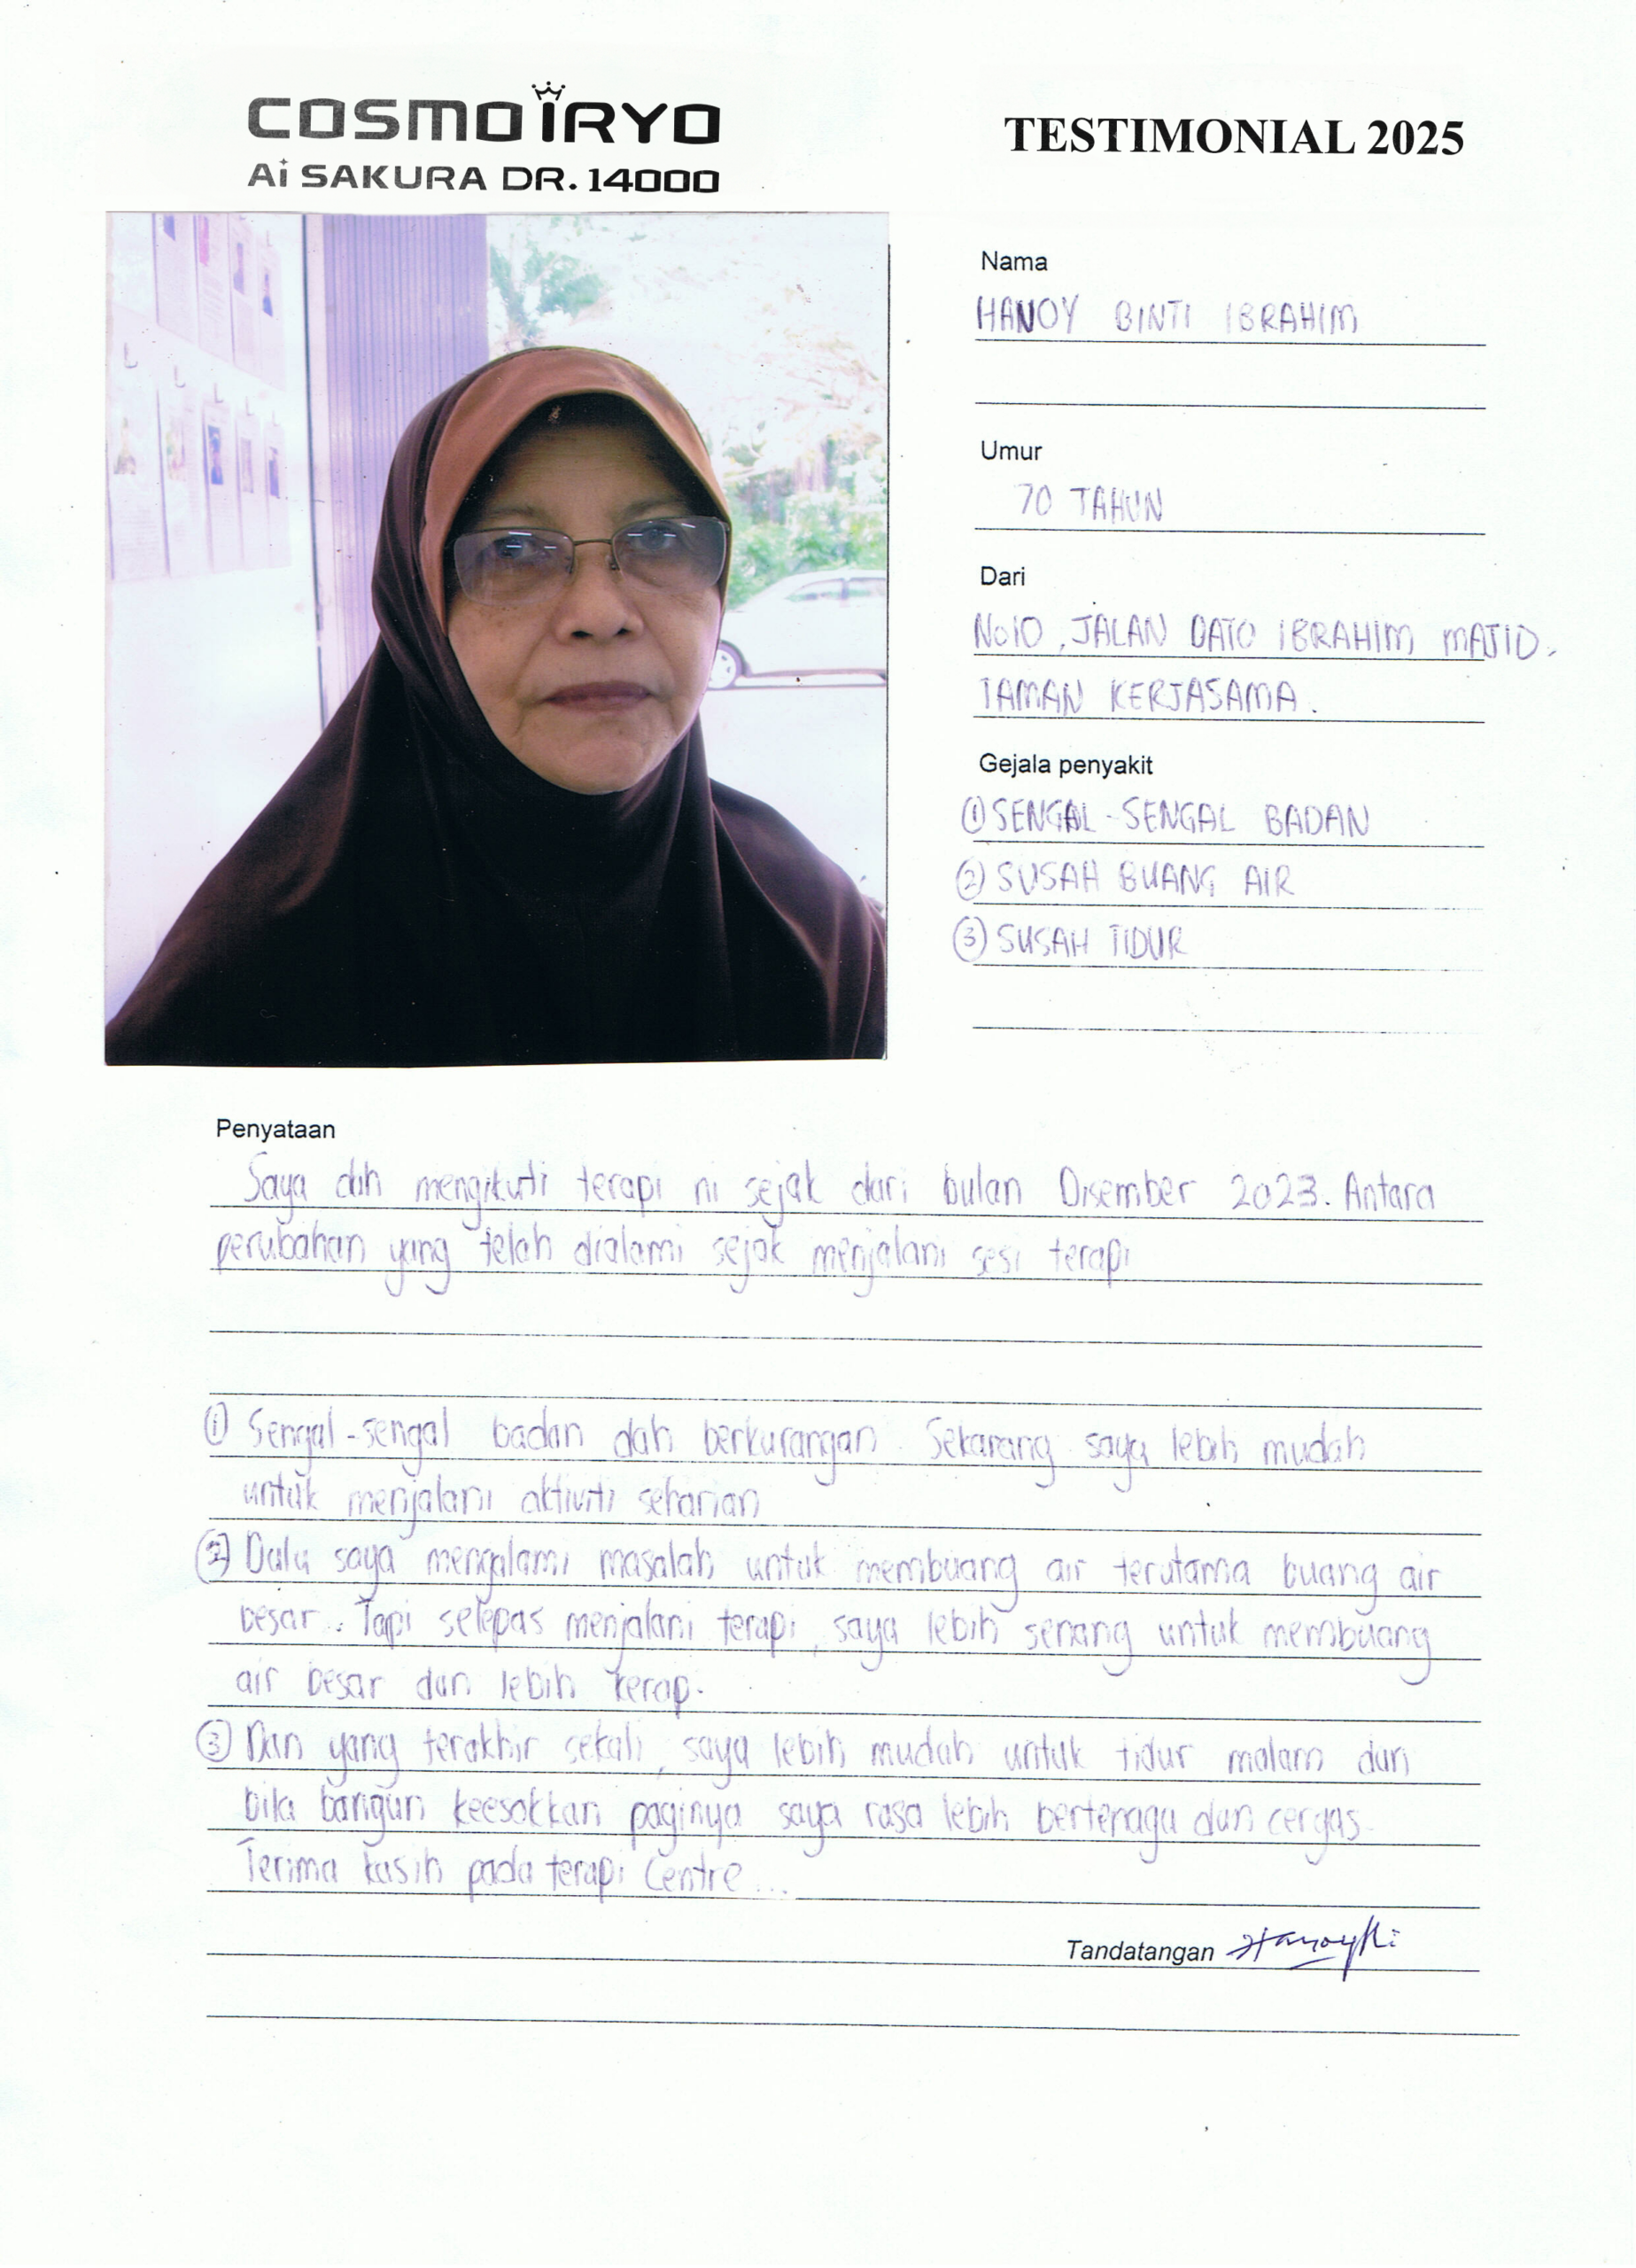 COSMO IRYO
Ai SAKURA DR. 14000
TESTIMONIAL 2025
Nama
HANOY BINTI IBRAHIM
Umur
70 TAHUN
Dari
No10, JALAN DATO IBRAHIM MAJID,
TAMAN KERJASAMA.
Gejala penyakit
① SENGAL-SENGAL BADAN
② SUSAH BUANG AIR
③ SUSAH TIDUR
Penyataan
Saya dah mengikuti terapi ni sejak dari bulan Disember 2023. Antara
perubahan yang telah dialami sejak menjalani sesi terapi
① Sengal-sengal badan dah berkurangan. Sekarang saya lebih mudah
untuk menjalani aktiviti seharian
② Dulu saya mengalami masalah untuk membuang air terutama buang air
besar. Tapi selepas menjalani terapi, saya lebih senang untuk membuang
air besar dan lebih kerap.
③ Dan yang terakhir sekali, saya lebih mudah untuk tidur malam dan
bila bangun keesokkan paginya saya rasa lebih bertenaga dan cergas.
Terima kasih pada terapi Centre...
Tandatangan